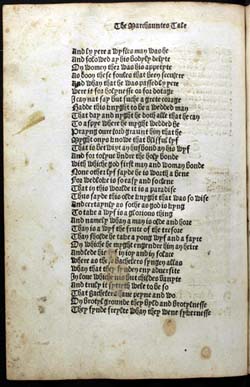 The Marchauntes Tale
And ſy yere a wyfles man was he
And folowed ay his bodyly delyte
On women ther was his appetyte
As doon theſe fooles that been ſeculere
And whan that he was paſſed ſy yere
Were it for holyneſſe or for dotage
I can not ſay but ſuche a grete corage
Hadde this knyght to be a wedded man
That day and nyght he doth alle that he can
To aſpye where he myght wedded be
Prayng oure lord graunt him that he
Myght onys knowe that bliſful lyf
That is betwixt an huſbond and his wyf
And for to lyue under the holy bonde
With whiche god firſt man and woman bonde
None other lyf ſayde he is worth a bene
For wedlok is ſo eaſy and ſo clene
That in this world it is a paradiſe
Thus ſayde this olde knyght that was ſo wiſe
And certaynly as ſoth as god is kyng
To take a wyf is a glorious thing
And namely whan a man is olde and hore
Than is a wyf the frute of his treſore
Than ſholde he take a yong wyf and a fayre
On whiche he myght engendre him an heire
And lede his lyf in ioy and in ſolace
Where as bachelers ſyngen allas
Whan that they fynden eny aduerſite
In loue whiche nis but childes vanyte
And truly it ſytteth wele to be ſo
That bachelers haue peyne and wo
On brotyl grounde they byld and brotylneſſe
They fynde freylte whan they wene ſykerneſſe